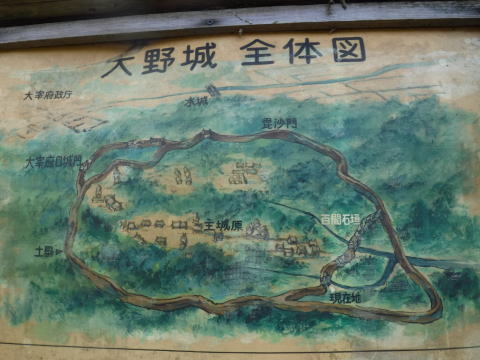 大野城 全体図
大宰府政庁
水城
毘沙門
大宰府口城門
百間石垣
主城原
土塁
現在地